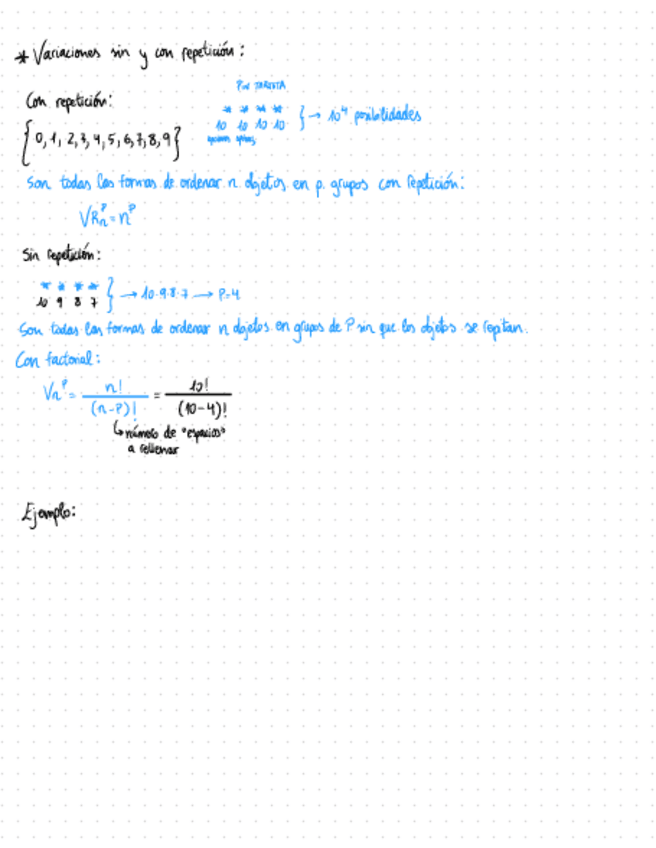 * Variaciones sin y con repetición:
PIN TARJETA
Con repetición:
* * * * } → 10⁴ posibilidades
10 10 10 10
{0, 1, 2, 3, 4, 5, 6, 7, 8, 9}
Son todas las formas de ordenar n objetos en p grupos con repetición:
VRₙᵖ = nᵖ
Sin repetición:
* * * * } → 10·9·8·7 → P=4
10 9 8 7
Son todas las formas de ordenar n objetos en grupos de P sin que los objetos se repitan.
Con factorial:
Vₙᵖ = n! / (n-P)! = 10! / (10-4)!
↳ número de "espacios"
a rellenar
Ejemplo: